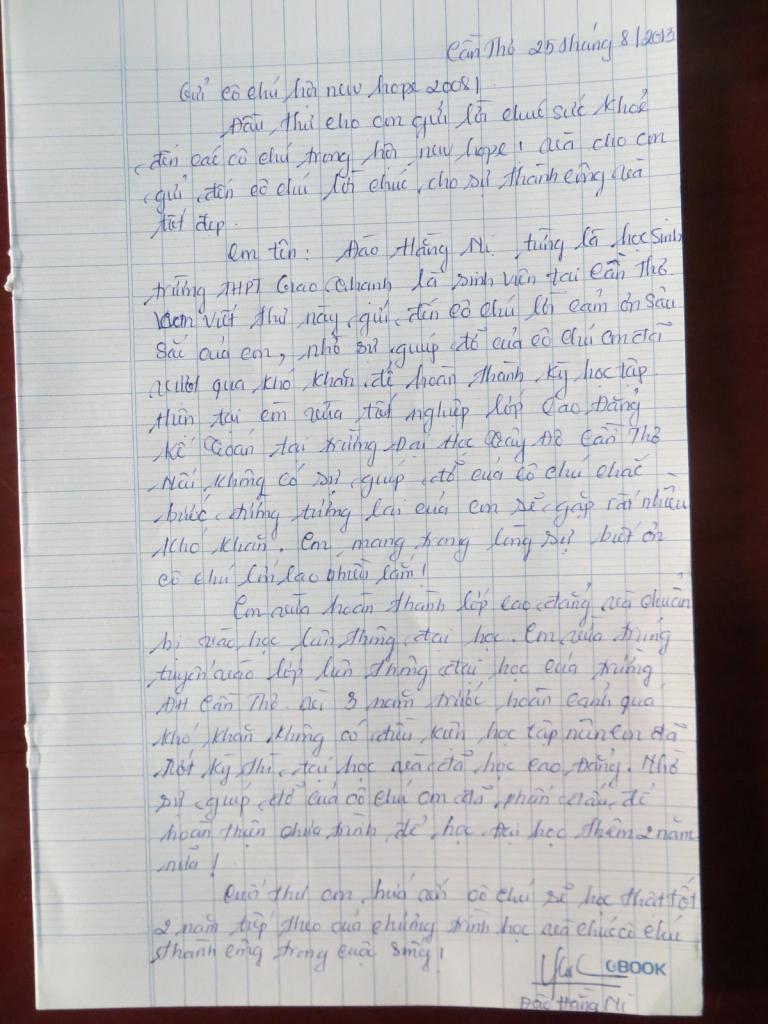 Cần Thơ 25 tháng 8/2013
Gửi cô chú hội new hope 2008!
Đầu thư cho con gửi lời chúc sức khoẻ
đến các cô chú trong hội new hope! và cho con
gửi đến cô chú lời chúc, cho sự thành công và
tốt đẹp.
Em tên: Đào Hằng Ni từng là học sinh
trường THPT Giao là sinh viên tại Cần Thơ.
viết thư này gửi đến cô chú lời cảm ơn sâu
sắc của em, nhờ sự giúp đỡ của cô chú em đã
vượt qua khó khăn để hoàn thành kỳ học tập.
Hiện tại em vừa tốt nghiệp lớp Cao Đẳng
Kế Toán tại trường Đại Học Tây Đô Cần Thơ
Nếu không có sự giúp đỡ của cô chú chắc
bước đường tương lai của em sẽ gặp rất nhiều
khó khăn. Em mang trong lòng sự biết ơn
cô chú lớn lao nhiều lắm!
Em vừa hoàn thành lớp cao đẳng và chuẩn
bị vào học liên thông đại học. Em vừa trúng
tuyển vào lớp liên thông đại học của trường
ĐH Cần Thơ. Vì 3 năm trước hoàn cảnh quá
khó khăn không có điều kiện học tập nên em đã
rớt kỳ thi đại học và đã học cao đẳng. Nhờ
sự giúp đỡ của cô chú em đã phấn đấu để
hoàn thiện chưa trình để học Đại học thêm 2 năm
nữa!
Cuối thư em hứa với cô chú sẽ học thật tốt
2 năm tiếp theo của chương trình học và chúc cô chú
thành công trong cuộc sống!
BOOK
Đào Hằng Ni